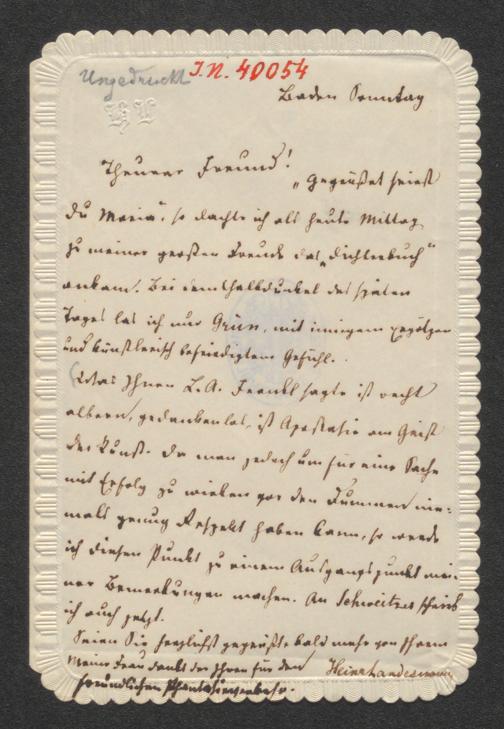 Ungedruckt I.N. 40054
HL
Baden Sonntag
Theurer Freund!
„Gegrüßet seist
du Maria“, so dachte ich als heute Mittag
zu meiner großen Freude das „Dichterbuch“
ankam. Bei dem Halbdunkel des späten
Tages las ich nur Grün, mit innigem Ergötzen
und künstlerisch befriedigtem Gefühl.
(Was Ihnen L.A. Frankl sagte ist recht
albern, gedankenlos, ist Apostasie am Geist
der Kunst. Da man jedoch um für eine Sache
mit Erfolg zu wirken vor den Dummen nie-
mals genug Respekt haben kann, so werde
ich diesen Punkt zu einem Ausgangspunkt mei-
ner Bemerkungen machen. An Schweitzer schrieb
ich auch jetzt.
Seien Sie herzlichst gegrüßt bald mehr von Ihrem
Meine Frau dankt der Ihren für den Heinr Landesmann
freundlichen